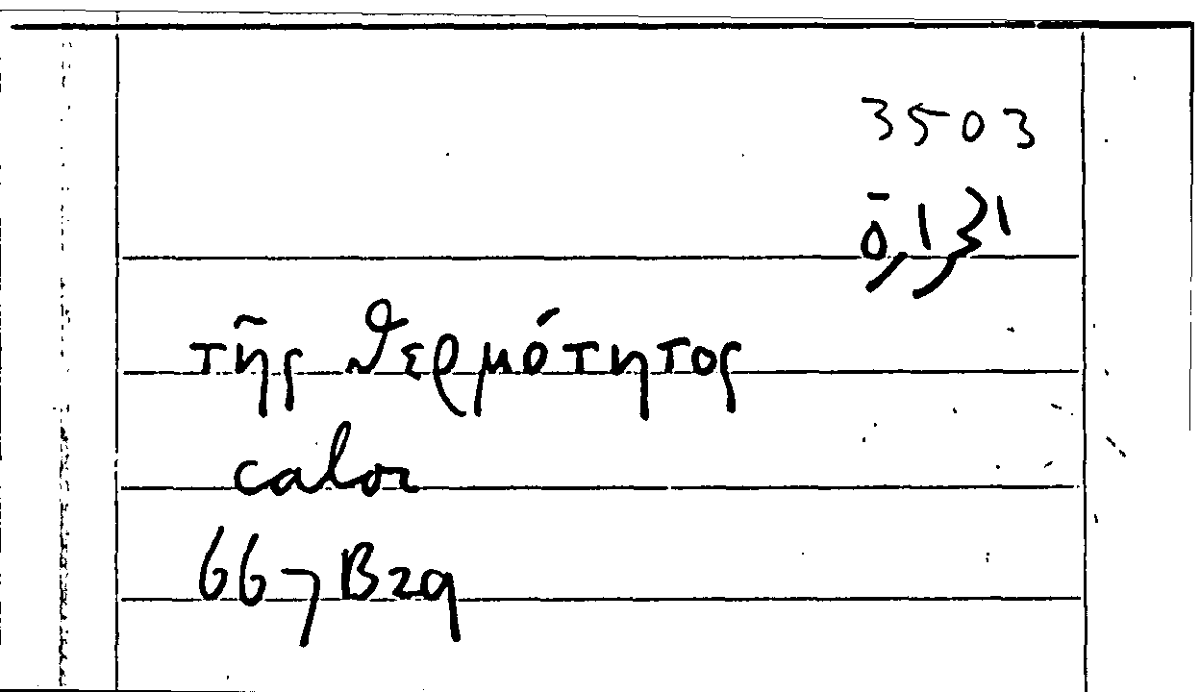 3503
ō,1,31
τῆς θερμότητος
calor
667B29